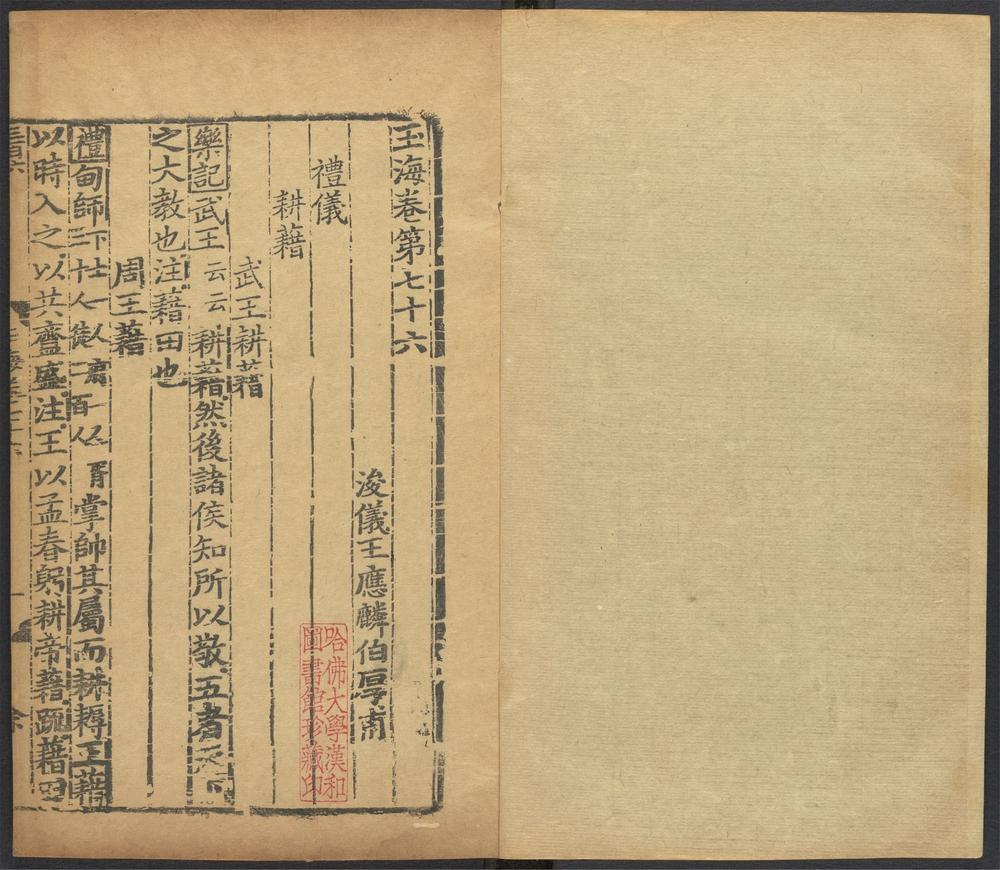 玉海卷第七十六
浚儀王應麟伯厚甫
禮儀
耕藉
武王耕藉
樂記武王云云耕藉然後諸侯知所以敬五者天下
之大教也注藉田也
周王藉
禮甸師下士二人府一人史二人胥三十人徒三百人掌帥其屬而耕耨王藉
以時入之以共齍盛注王以孟春躬耕帝藉疏藉田
哈佛大學漢和
圖書館珍藏印